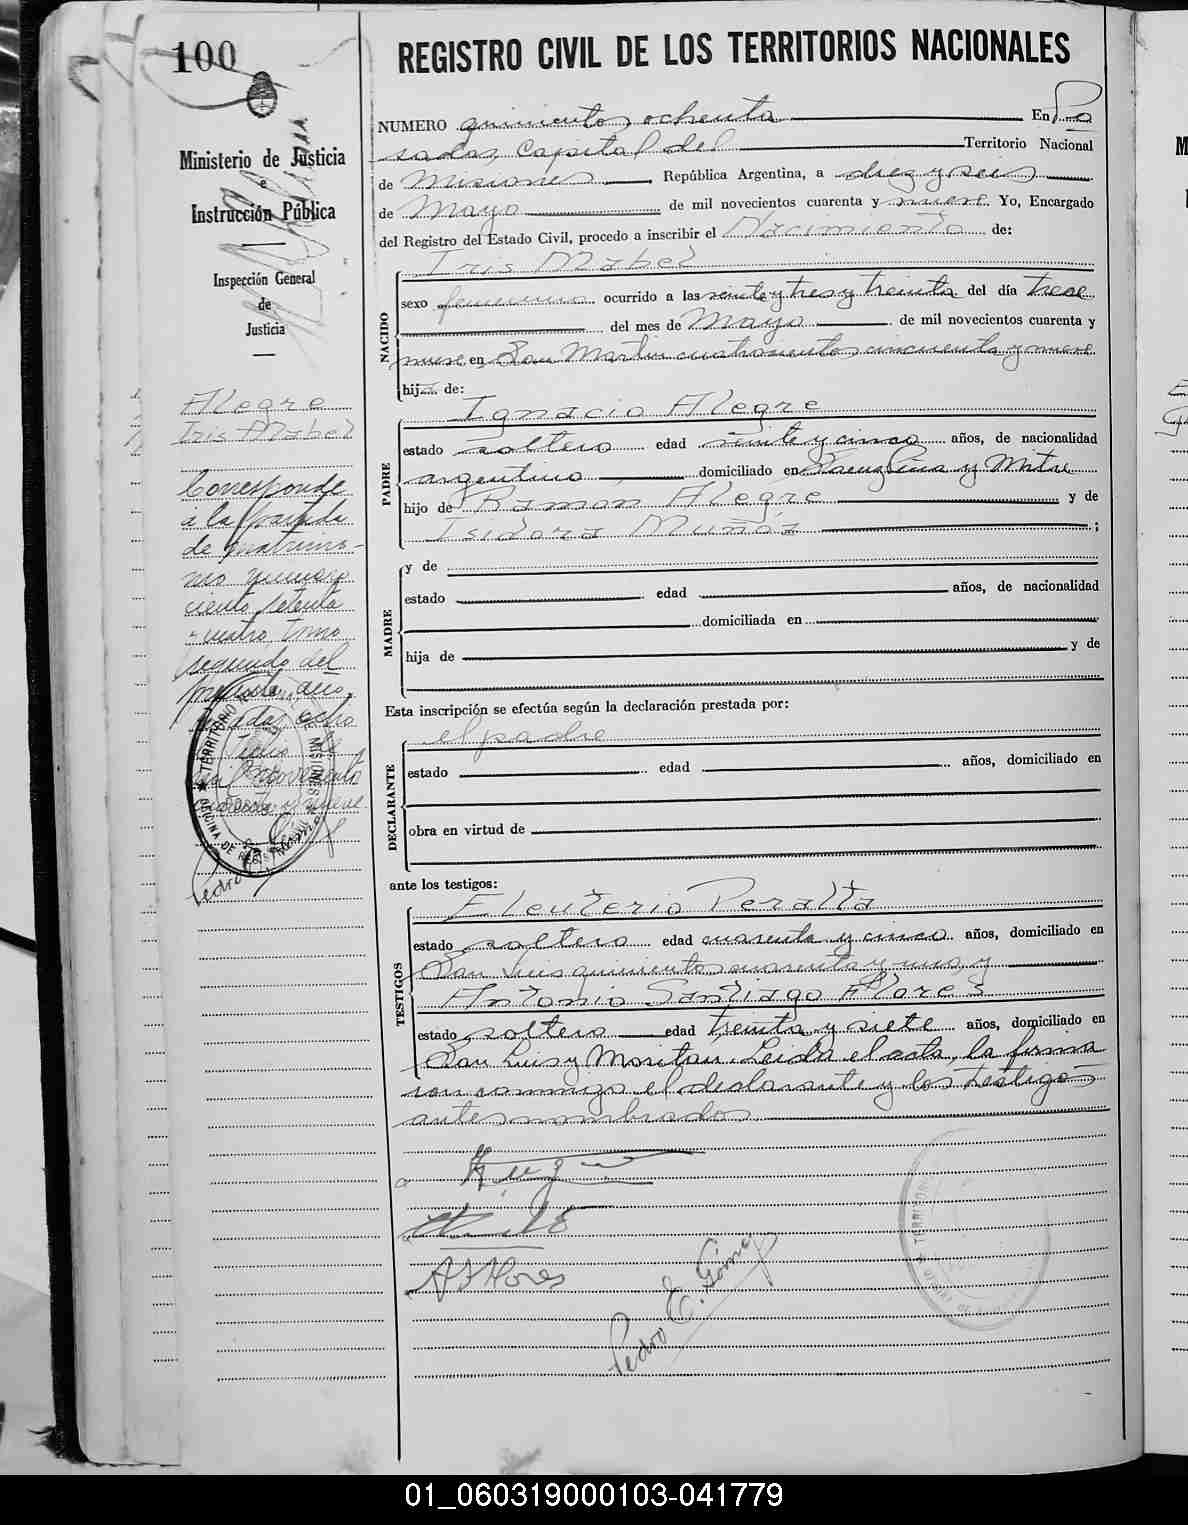 100
REGISTRO CIVIL DE LOS TERRITORIOS NACIONALES
Ministerio de Justicia
e
Instrucción Pública
Inspección General
de
Justicia
Alegre
Iris Mabel
Corresponde
a la partida
de matrimo-
nio
ciento setenta
cuatro tomo
segundo del
ocho
de
y nueve
Pedro
NUMERO quinientos ochenta En Po
sadas, Capital del Territorio Nacional
de Misiones República Argentina, a diez y seis
de Mayo de mil novecientos cuarenta y nueve. Yo, Encargado
del Registro del Estado Civil, procedo a inscribir el Nacimiento de:
NACIDO
Iris Mabel
sexo femenino ocurrido a las veinte y tres y treinta del día trece
del mes de Mayo de mil novecientos cuarenta y
nueve en San Martin cuatrocientos cincuenta y nueve
hija de:
PADRE
Ignacio Alegre
estado soltero edad veinte y cinco años, de nacionalidad
argentino domiciliado en y Mitre
hijo de Ramón Alegre y de
Isidora Muñoz ;
MADRE
y de
estado edad años, de nacionalidad
domiciliada en
hija de y de
Esta inscripción se efectúa según la declaración prestada por:
DECLARANTE
el padre
estado edad años, domiciliado en
obra en virtud de
ante los testigos:
TESTIGOS
Eleuterio Peralta
estado soltero edad cuarenta y cinco años, domiciliado en
San Luis quinientos noventa y uno, y
Antonio Santiago Flores
estado soltero edad treinta y siete años, domiciliado en
San Luis y Moritan. Leida el acta, la firma
con conmigo el declarante y los testigos
antes nombrados
A S Flores
Pedro E. Gómez
01_060319000103-041779